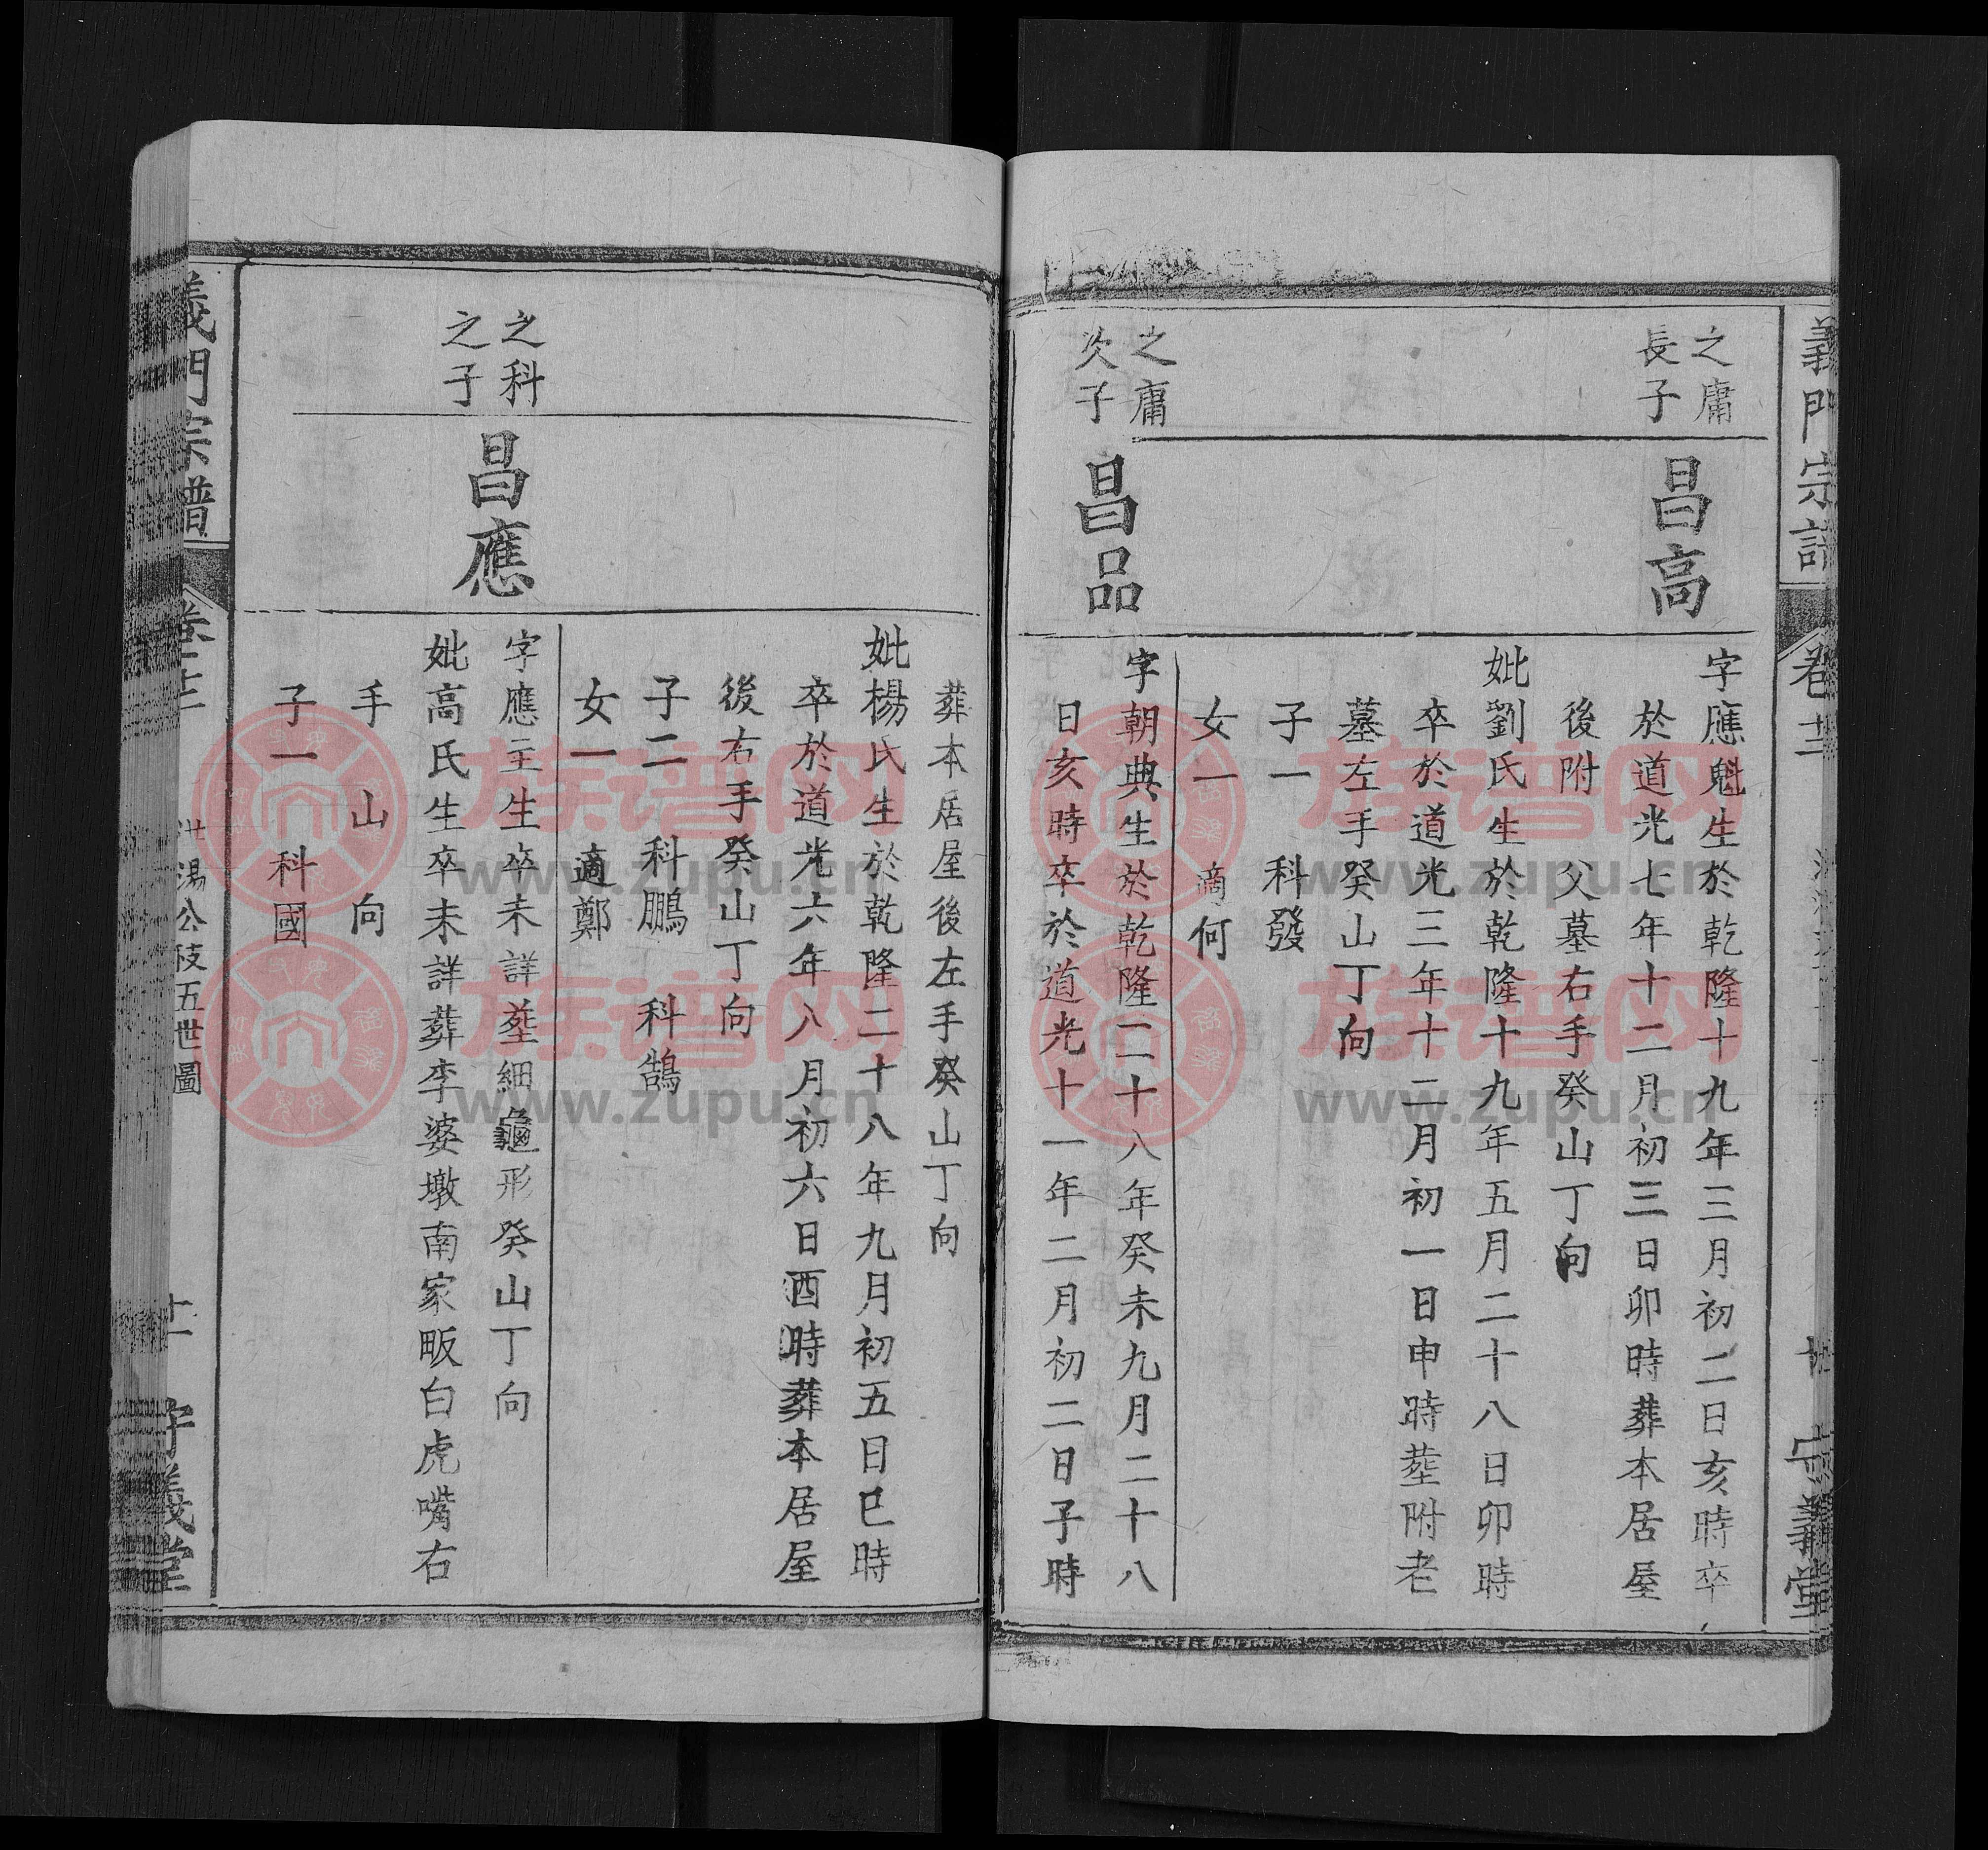 義門宗譜
卷十二
守義堂
之庸
長子
昌高
字應魁生於乾隆十九年三月初二日亥時卒
於道光七年十二月初三日卯時葬本居屋
後附 父墓右手癸山丁向
妣劉氏生於乾隆十九年五月二十八日卯時
卒於道光三年十二月初一日申時塟附老
墓左手癸山丁向
子一 科發
女一 適何
之庸
次子
昌品
字朝典生於乾隆二十八年癸未九月二十八
日亥時卒於道光十一年二月初二日子時
葬本居屋後左手癸山丁向
妣楊氏生於乾隆二十八年九月初五日巳時
卒於道光六年八月初六日酉時葬本居屋
後右手癸山丁向
子二 科鵬 科鵠
女一 適鄭
之科
之子
昌應
字應主生卒未詳塟細龜形癸山丁向
妣高氏生卒未詳葬李婆墩南家畈白虎嘴右
手 山 向
子一 科國
義門宗譜
卷十二
湯公枝五世圖
守義堂
族谱网
www.zupu.cn
族谱网
www.zupu.cn
族谱网
www.zupu.cn
族谱网
www.zupu.cn